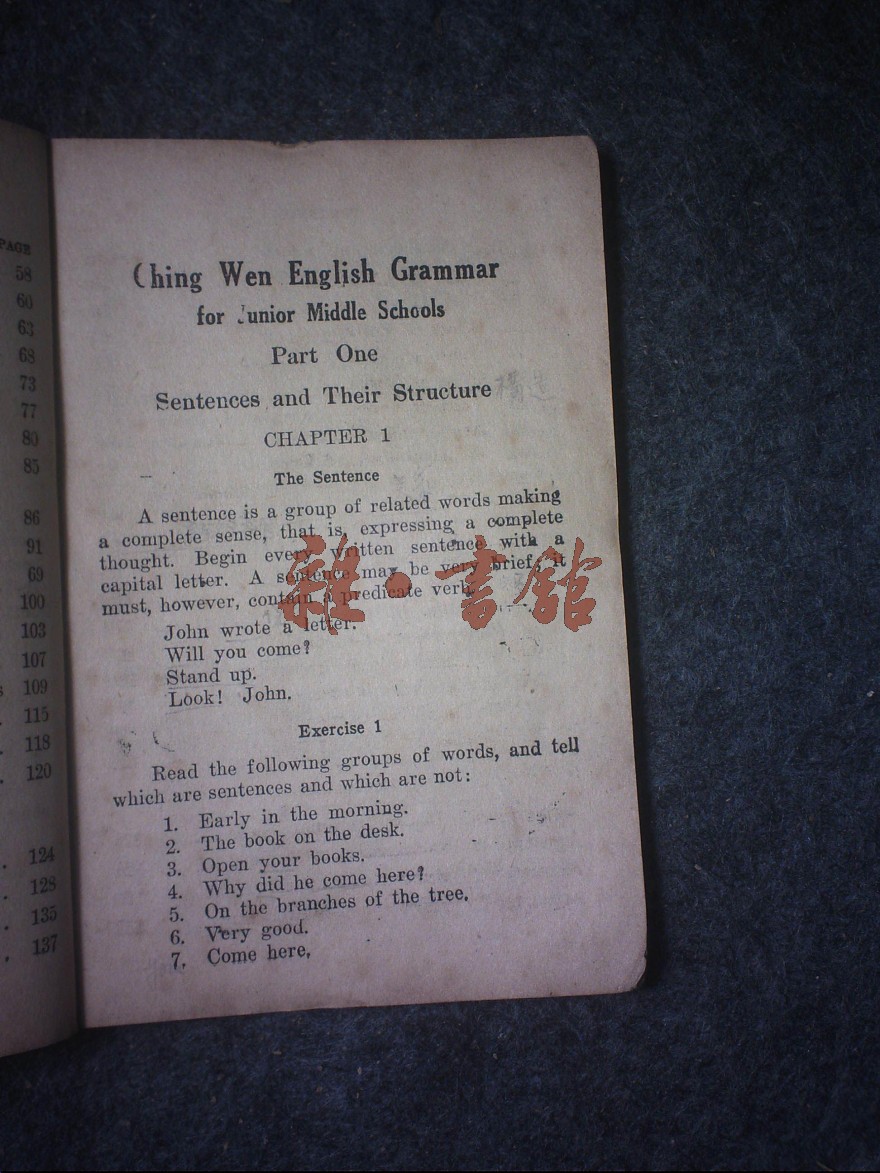 PAGE
58
60
63
68
73
77
80
85
86
91
69
100
103
107
s 109
. 115
. 118
. 120
. 124
. 128
. 135
. 137
Ching Wen English Grammar
for Junior Middle Schools
Part One
Sentences and Their Structure
CHAPTER 1
The Sentence
A sentence is a group of related words making
a complete sense, that is, expressing a complete
thought. Begin every written sentence with a
capital letter. A sentence may be very brief, it
must, however, contain a predicate verb.
John wrote a letter.
Will you come?
Stand up.
Look! John.
Exercise 1
Read the following groups of words, and tell
which are sentences and which are not:
1. Early in the morning.
2. The book on the desk.
3. Open your books.
4. Why did he come here?
5. On the branches of the tree.
6. Very good.
7. Come here.
雜·書館